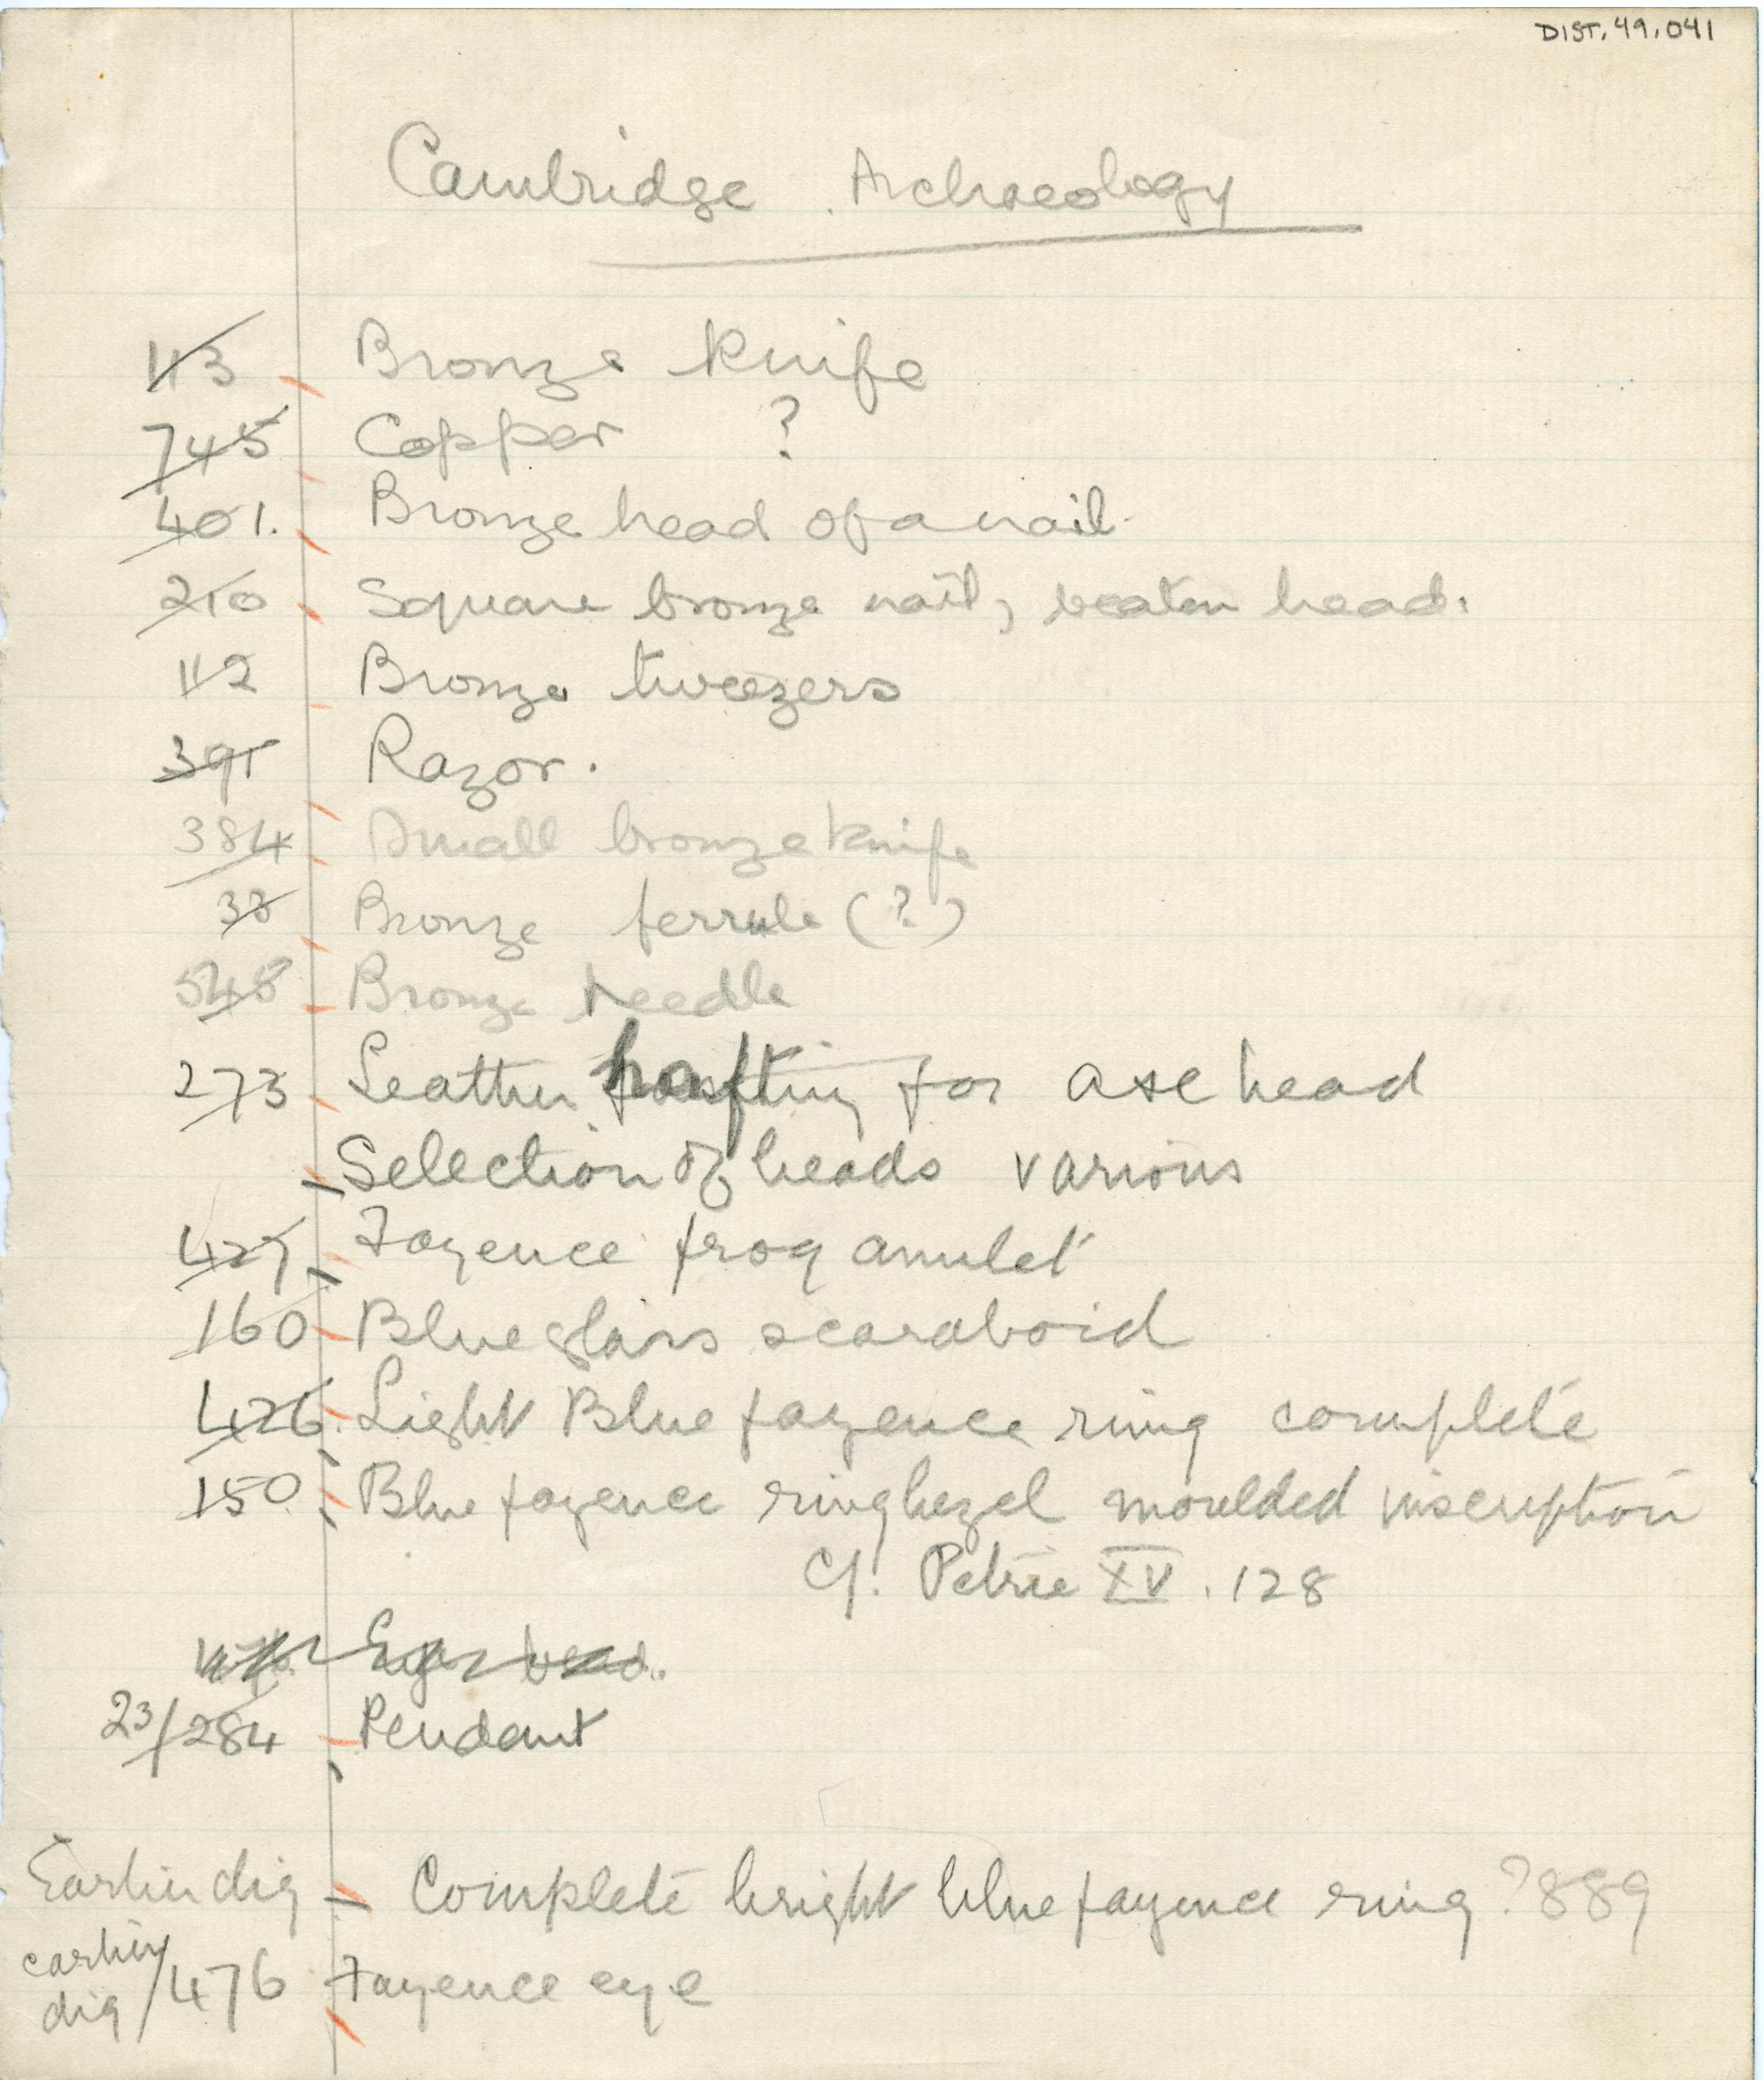 DIST. 49.041
Cambridge Archaeology
113 Bronze knife
745 Copper ?
401. Bronze head of a nail.
210 Square bronze nail, beaten head.
112 Bronze tweezers
391 Razor.
384 Small bronze knife
38 Bronze ferrule (?)
548 Bronze needle
273 Leather hafting for axe head
Selection of beads various
427 Fayence frog amulet
160 Blue glass scaraboid
426. Light Blue fayence ring complete
150. Blue fayence ring bezel moulded inscription
Cf. Petrie XV. 128
bead.
23/284 Pendant
Earlier dig Complete bright blue fayence ring ? 889
earlier dig / 476 Fayence eye